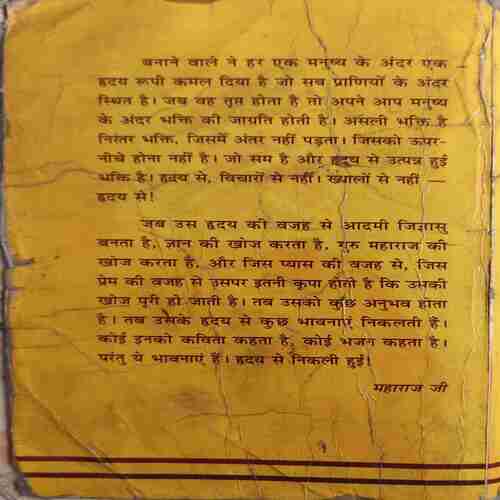 बनाने वाले ने हर एक मनुष्य के अंदर एक
हृदय रूपी कमल दिया है जो सब प्राणियों के अंदर
स्थित है। जब वह तृप्त होता है तो अपने आप मनुष्य
के अंदर भक्ति की जाग्रति होती है। असली भक्ति है
निरंतर भक्ति, जिसमें अंतर नहीं पड़ता। जिसको ऊपर-
नीचे होना नहीं है। जो सम है और हृदय से उत्पन्न हुई
भक्ति है। हृदय से, विचारों से नहीं। ख्यालों से नहीं —
हृदय से!
जब उस हृदय की वजह से आदमी जिज्ञासु
बनता है, ज्ञान की खोज करता है, गुरु महाराज की
खोज करता है, और जिस प्यास की वजह से, जिस
प्रेम की वजह से उसपर इतनी कृपा होती है कि उसकी
खोज पूरी हो जाती है। तब उसको कुछ अनुभव होता
है। तब उसके हृदय से कुछ भावनाएं निकलती हैं।
कोई इनको कविता कहता है, कोई भजन कहता है।
परंतु ये भावनाएं हैं। हृदय से निकली हुई!
महाराज जी